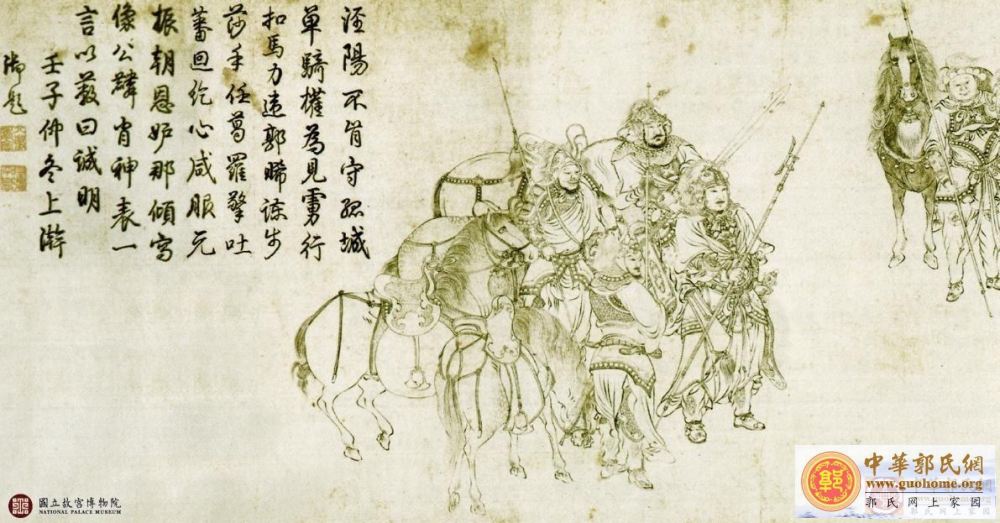 涇陽不肯守孤城
單騎權為見虜行
扣馬力違郭晞諫步
莎手任葛羅擎吐
蕃迴紇心咸服元
振朝恩妒那傾寫
像公麟肖神表一
言以蔽曰誠明
壬子仲冬上澣
御題
國立故宮博物院
NATIONAL PALACE MUSEUM
郭
中華郭氏網
www.guohome.org
郭氏网上家园